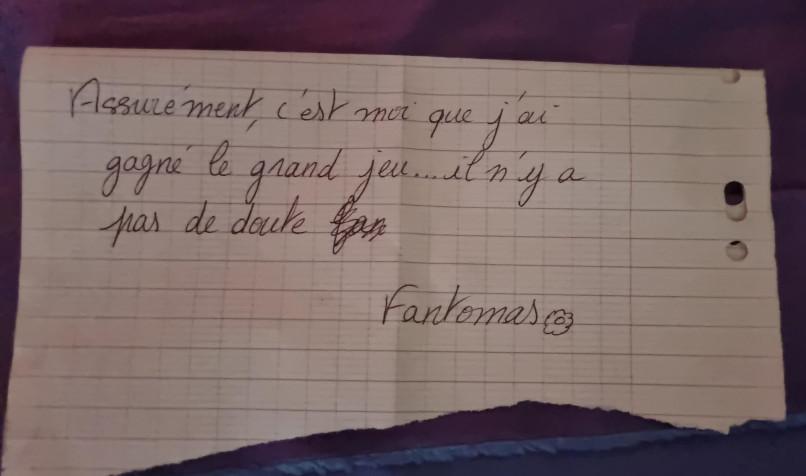 Assurément, c'est moi que j'ai
gagné le grand jeu...il n'y a
pas de doute
Fantomas